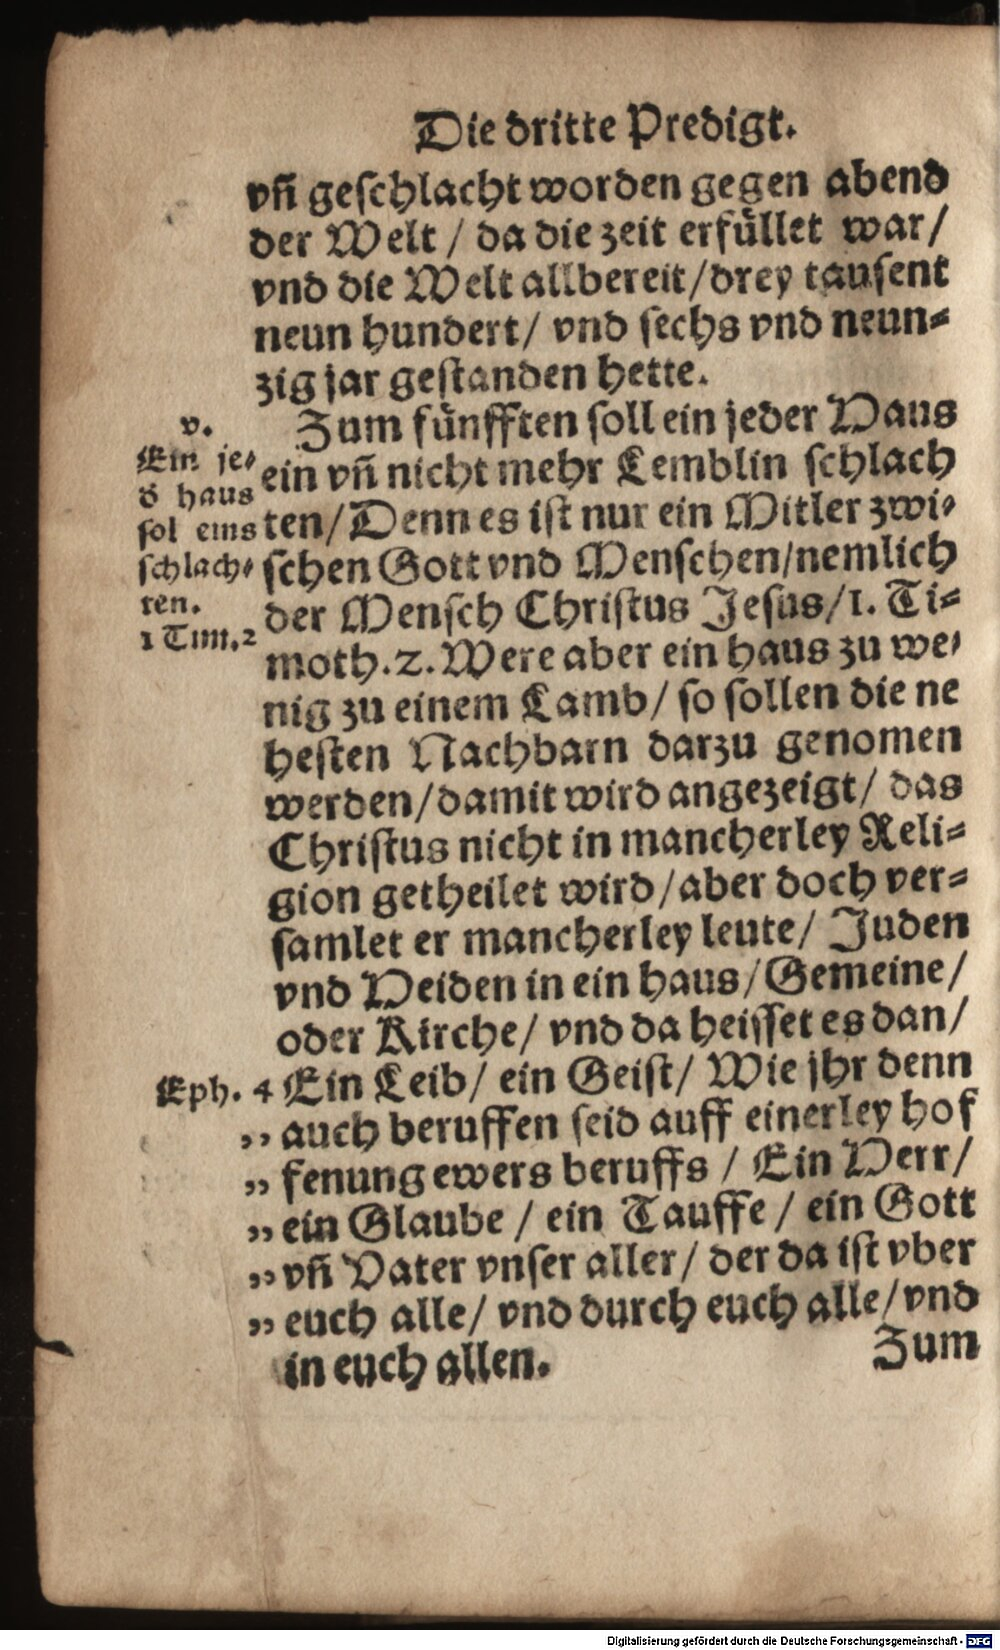 Die dritte Predigt.
vñ geschlacht worden gegen abend
der Welt / da die zeit erfüllet war/
vnd die Welt allbereit/drey tausent
neun hundert/ vnd sechs vnd neun-
zig jar gestanden hette.
Zum fünfften soll ein jeder Haus
ein vñ nicht mehr Lemblin schlach
ten/Denn es ist nur ein Mitler zwi-
schen Gott vnd Menschen/nemlich
der Mensch Christus Jesus/1. Ti-
moth.2. Were aber ein haus zu we-
nig zu einem Lamb/ so sollen die ne
hesten Nachbarn darzu genomen
werden/damit wird angezeigt/ das
Christus nicht in mancherley Reli-
gion getheilet wird/aber doch ver-
samlet er mancherley leute/ Juden
vnd Heiden in ein haus/Gemeine/
oder Kirche/ vnd da heisset es dan/
Ein Leib/ ein Geist/ Wie jhr denn
,, auch beruffen seid auff einerley hof
,, fenung ewers beruffs / Ein Herr/
,, ein Glaube / ein Tauffe / ein Gott
,, vñ Vater vnser aller/ der da ist vber
,, euch alle/ vnd durch euch alle/vnd
in euch allen.
Zum
v.
Ein je-
d haus
sol eins
schlach-
ten.
1 Tim.2
Eph. 4
Digitalisierung gefördert durch die Deutsche Forschungsgemeinschaft - DFG